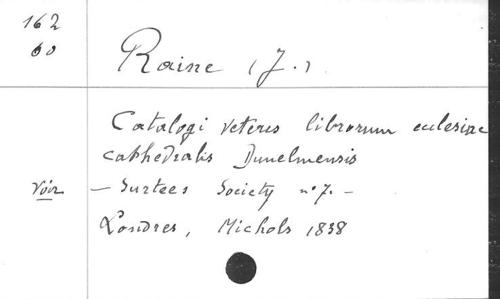 162
60
Raine (J.)
Catalogi veteres librorum ecclesiae
cathedralis Dunelmensis
voir — Surtees Society n° 7. —
Londres, Nichols 1838